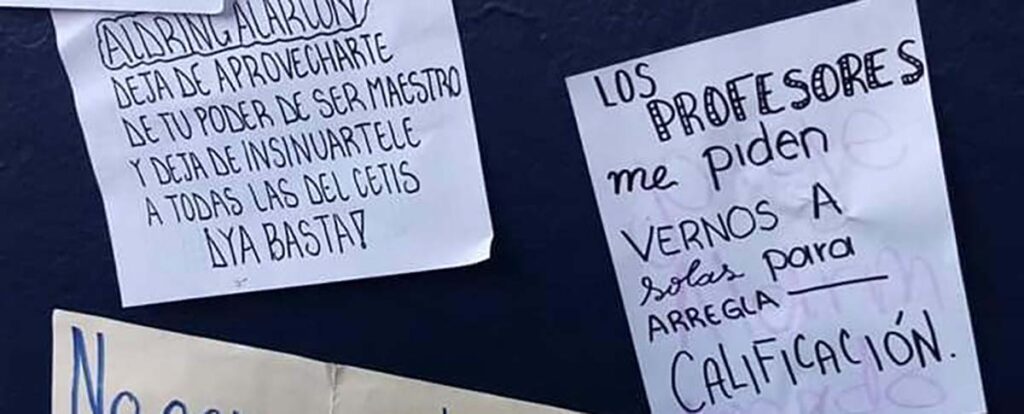 ALDRING ALARCON
DEJA DE APROVECHARTE
DE TU PODER DE SER MAESTRO
Y DEJA DE INSINUARTELE
A TODAS LAS DEL CETIS
¡YA BASTA!
LOS
PROFESORES
me piden
VERNOS A
solas para
ARREGLA
CALIFICACIÓN.
No